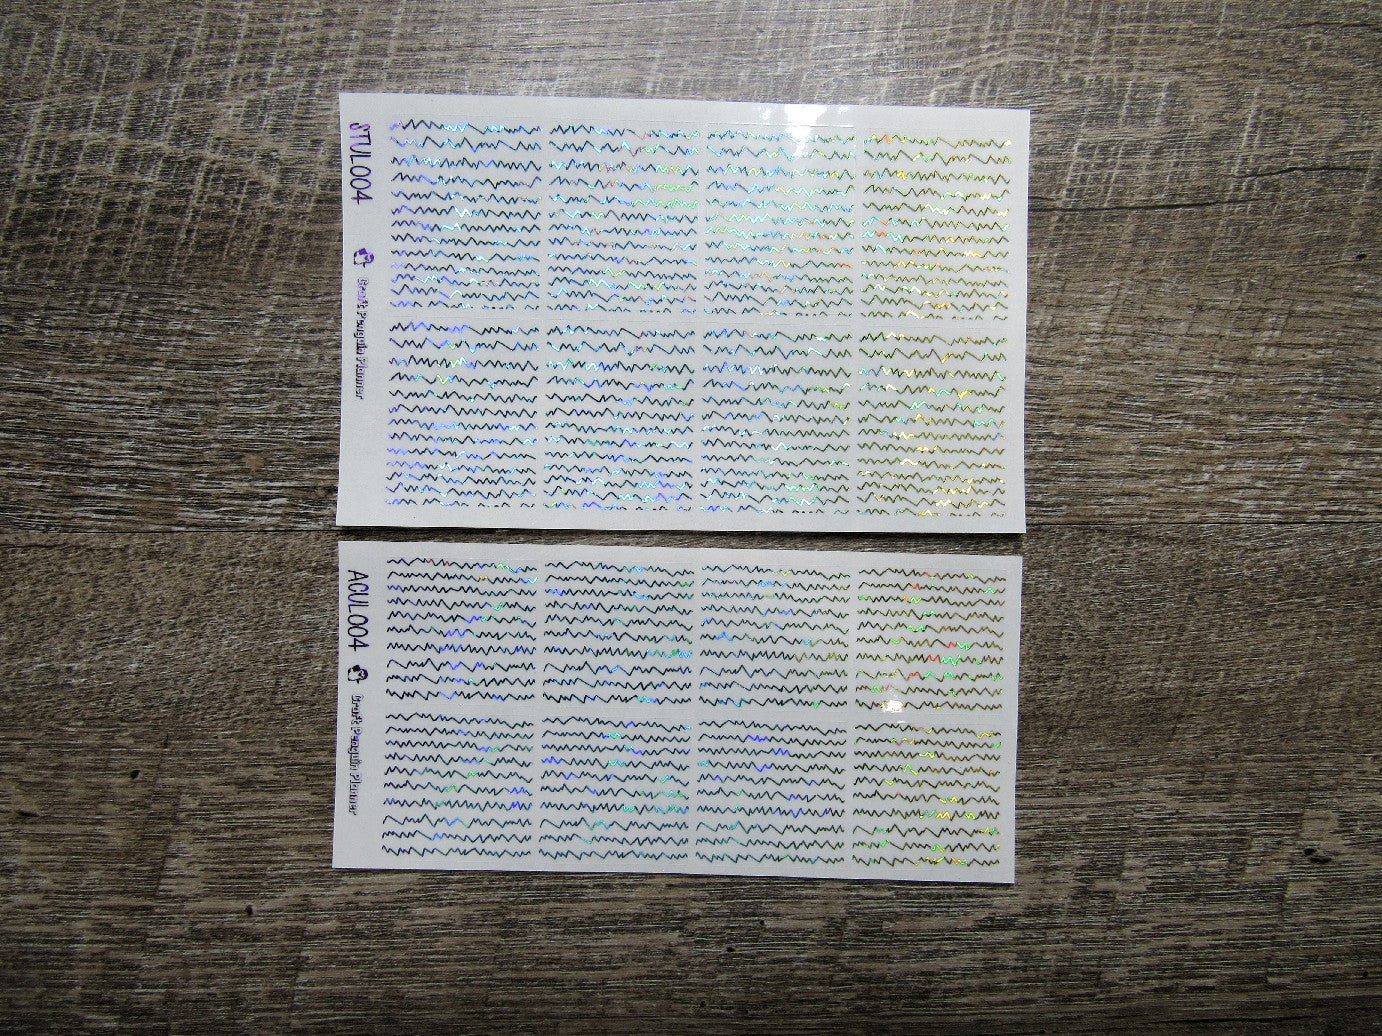 STUL004
Craft Penguin Planner
ACUL004
Craft Penguin Planner